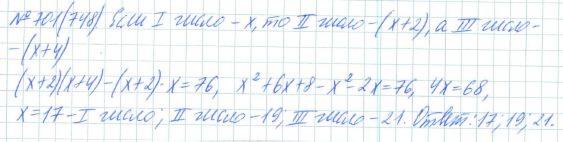 №701(748) Если I число - x, то II число - (x+2), а III число -
- (x+4)
(x+2)(x+4)-(x+2)·x=76, x²+6x+8-x²-2x=76, 4x=68,
x=17 - I число; II число - 19; III число - 21. Ответ: 17; 19; 21.